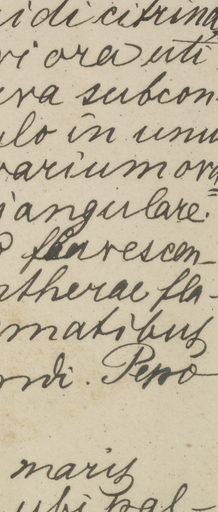 idi citrina
riora uti
rva subcon-
ulo in unu
varium ova
iangulare.
flavescen-
ntherae fla-
matibus
ndi. Pepo
maris
ubi hal-